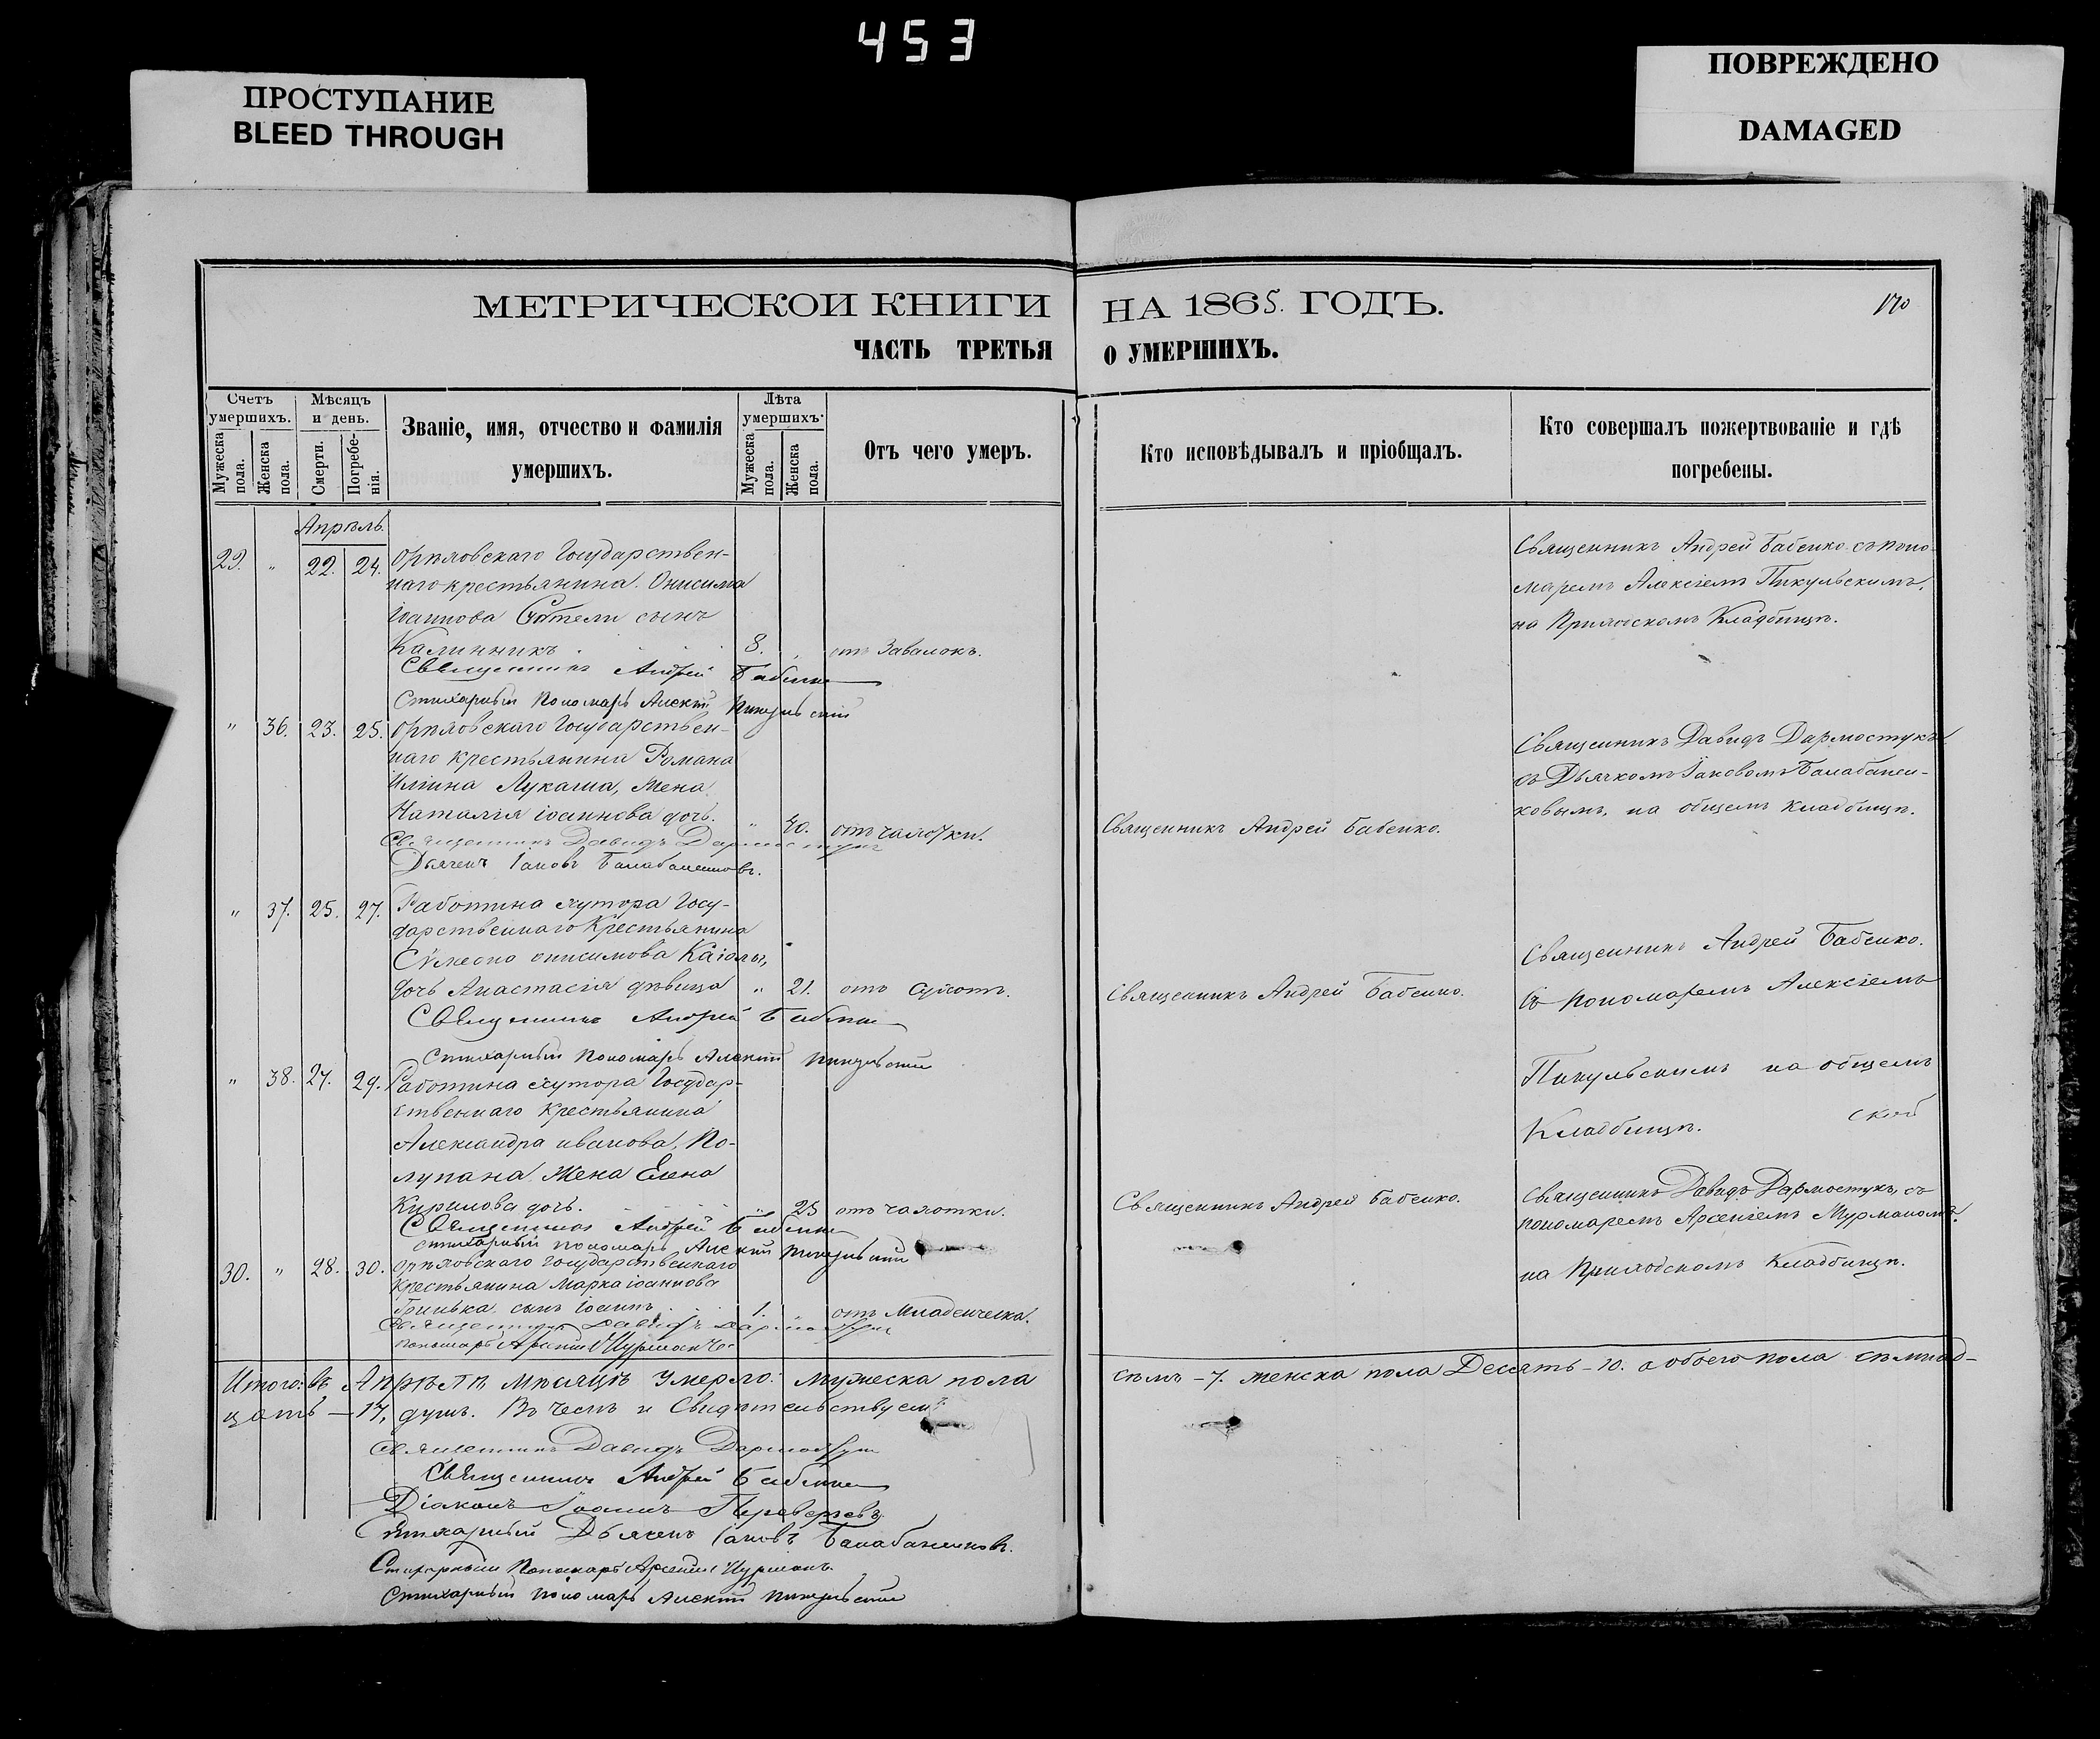 453
ПРОСТУПАНИЕ
BLEED THROUGH
ПОВРЕЖДЕНО
DAMAGED
МЕТРИЧЕСКОИ КНИГИ НА 1865. ГОДЪ.
170
ЧАСТЬ ТРЕТЬЯ О УМЕРШИХЪ.
Счетъ умершихъ.
Мужеска пола.
Женска пола.
Мѣсяцъ и день.
Смерти.
Погребе-
нія.
Званіе, имя, отчество и фамилія
умершихъ.
Лѣта умершихъ.
Мужеска пола.
Женска пола.
Отъ чего умеръ.
Кто исповѣдывалъ и пріобщалъ.
Кто совершалъ пожертвованіе и гдѣ
погребены.
Апрѣль.
29. " 22. 24. Орѣховскаго Государствен-
наго крестьянина Онисима
Іоаннова сынъ
Калинникъ 8. " отъ Завалокъ.
Священникъ Андрей Бабенко съ поно-
маремъ Алексіемъ Пикульскимъ,
на Приходскомъ Кладбищѣ.
Священникъ Андрей Бабенко
Стихарный Пономарь Алексій Пикульскій
" 36. 23. 25. Орѣховскаго Государствен-
наго крестьянина Романа
Иліина Лукаша, жена
Наталія іоаннова дочь. " 40. отъ чахотки.
Священникъ Андрей Бабенко.
Священникъ Давидъ Дармостукъ
съ Дьячкомъ Іаковомъ Балабанен-
ковымъ, на общемъ кладбищѣ.
Священникъ Давидъ Дармостукъ
Дьячекъ Іаковъ Балабаненковъ.
" 37. 25. 27. Работина хутора Госу-
дарственнаго Крестьянина
онисимова
дочь Анастасія дѣвица " 21. отъ сухотъ.
Священникъ Андрей Бабенко.
Священникъ Андрей Бабенко.
съ пономаремъ Алексіемъ
Пикульскимъ на общемъ
Кладбищѣ.
Священникъ Андрей Бабенко
Стихарный Пономарь Алексій Пикульскій
" 38. 27. 29. Работина хутора Государ-
ственнаго крестьянина
Александра иванова, По-
лупана жена Елена
Кирилова дочь. " 25 отъ чахотки.
Священникъ Андрей Бабенко.
Священникъ Давидъ Дармостукъ, съ
пономаремъ Арсеніемъ Мурманомъ.
на Приходскомъ Кладбищѣ.
Священникъ Андрей Бабенко
Стихарный пономарь Алексій Пикульскій
30. " 28. 30. Орѣховскаго Государственнаго
Крестьянина Марка іоаннова
Гринька, сынъ іоаннъ 1. " отъ Младенческа.
Священникъ Давидъ Дармостукъ
пономарь Арсеній Мурманъ
Итого: въ Апрѣлѣ мѣсяцѣ умерло: мужеска пола семь - 7. женска пола Десять - 10. а обоего пола семнад-
цать - 17, душъ. Въ чемъ и Свидѣтельствуемъ
Священникъ Давидъ Дармостукъ
Священникъ Андрей Бабенко
Діаконъ Іоаннъ Переверзевъ.
Стихарный Дьячекъ Іаковъ Балабаненковъ.
Стихарный Пономарь Арсеній Мурманъ.
Стихарный пономарь Алексій Пикульскій